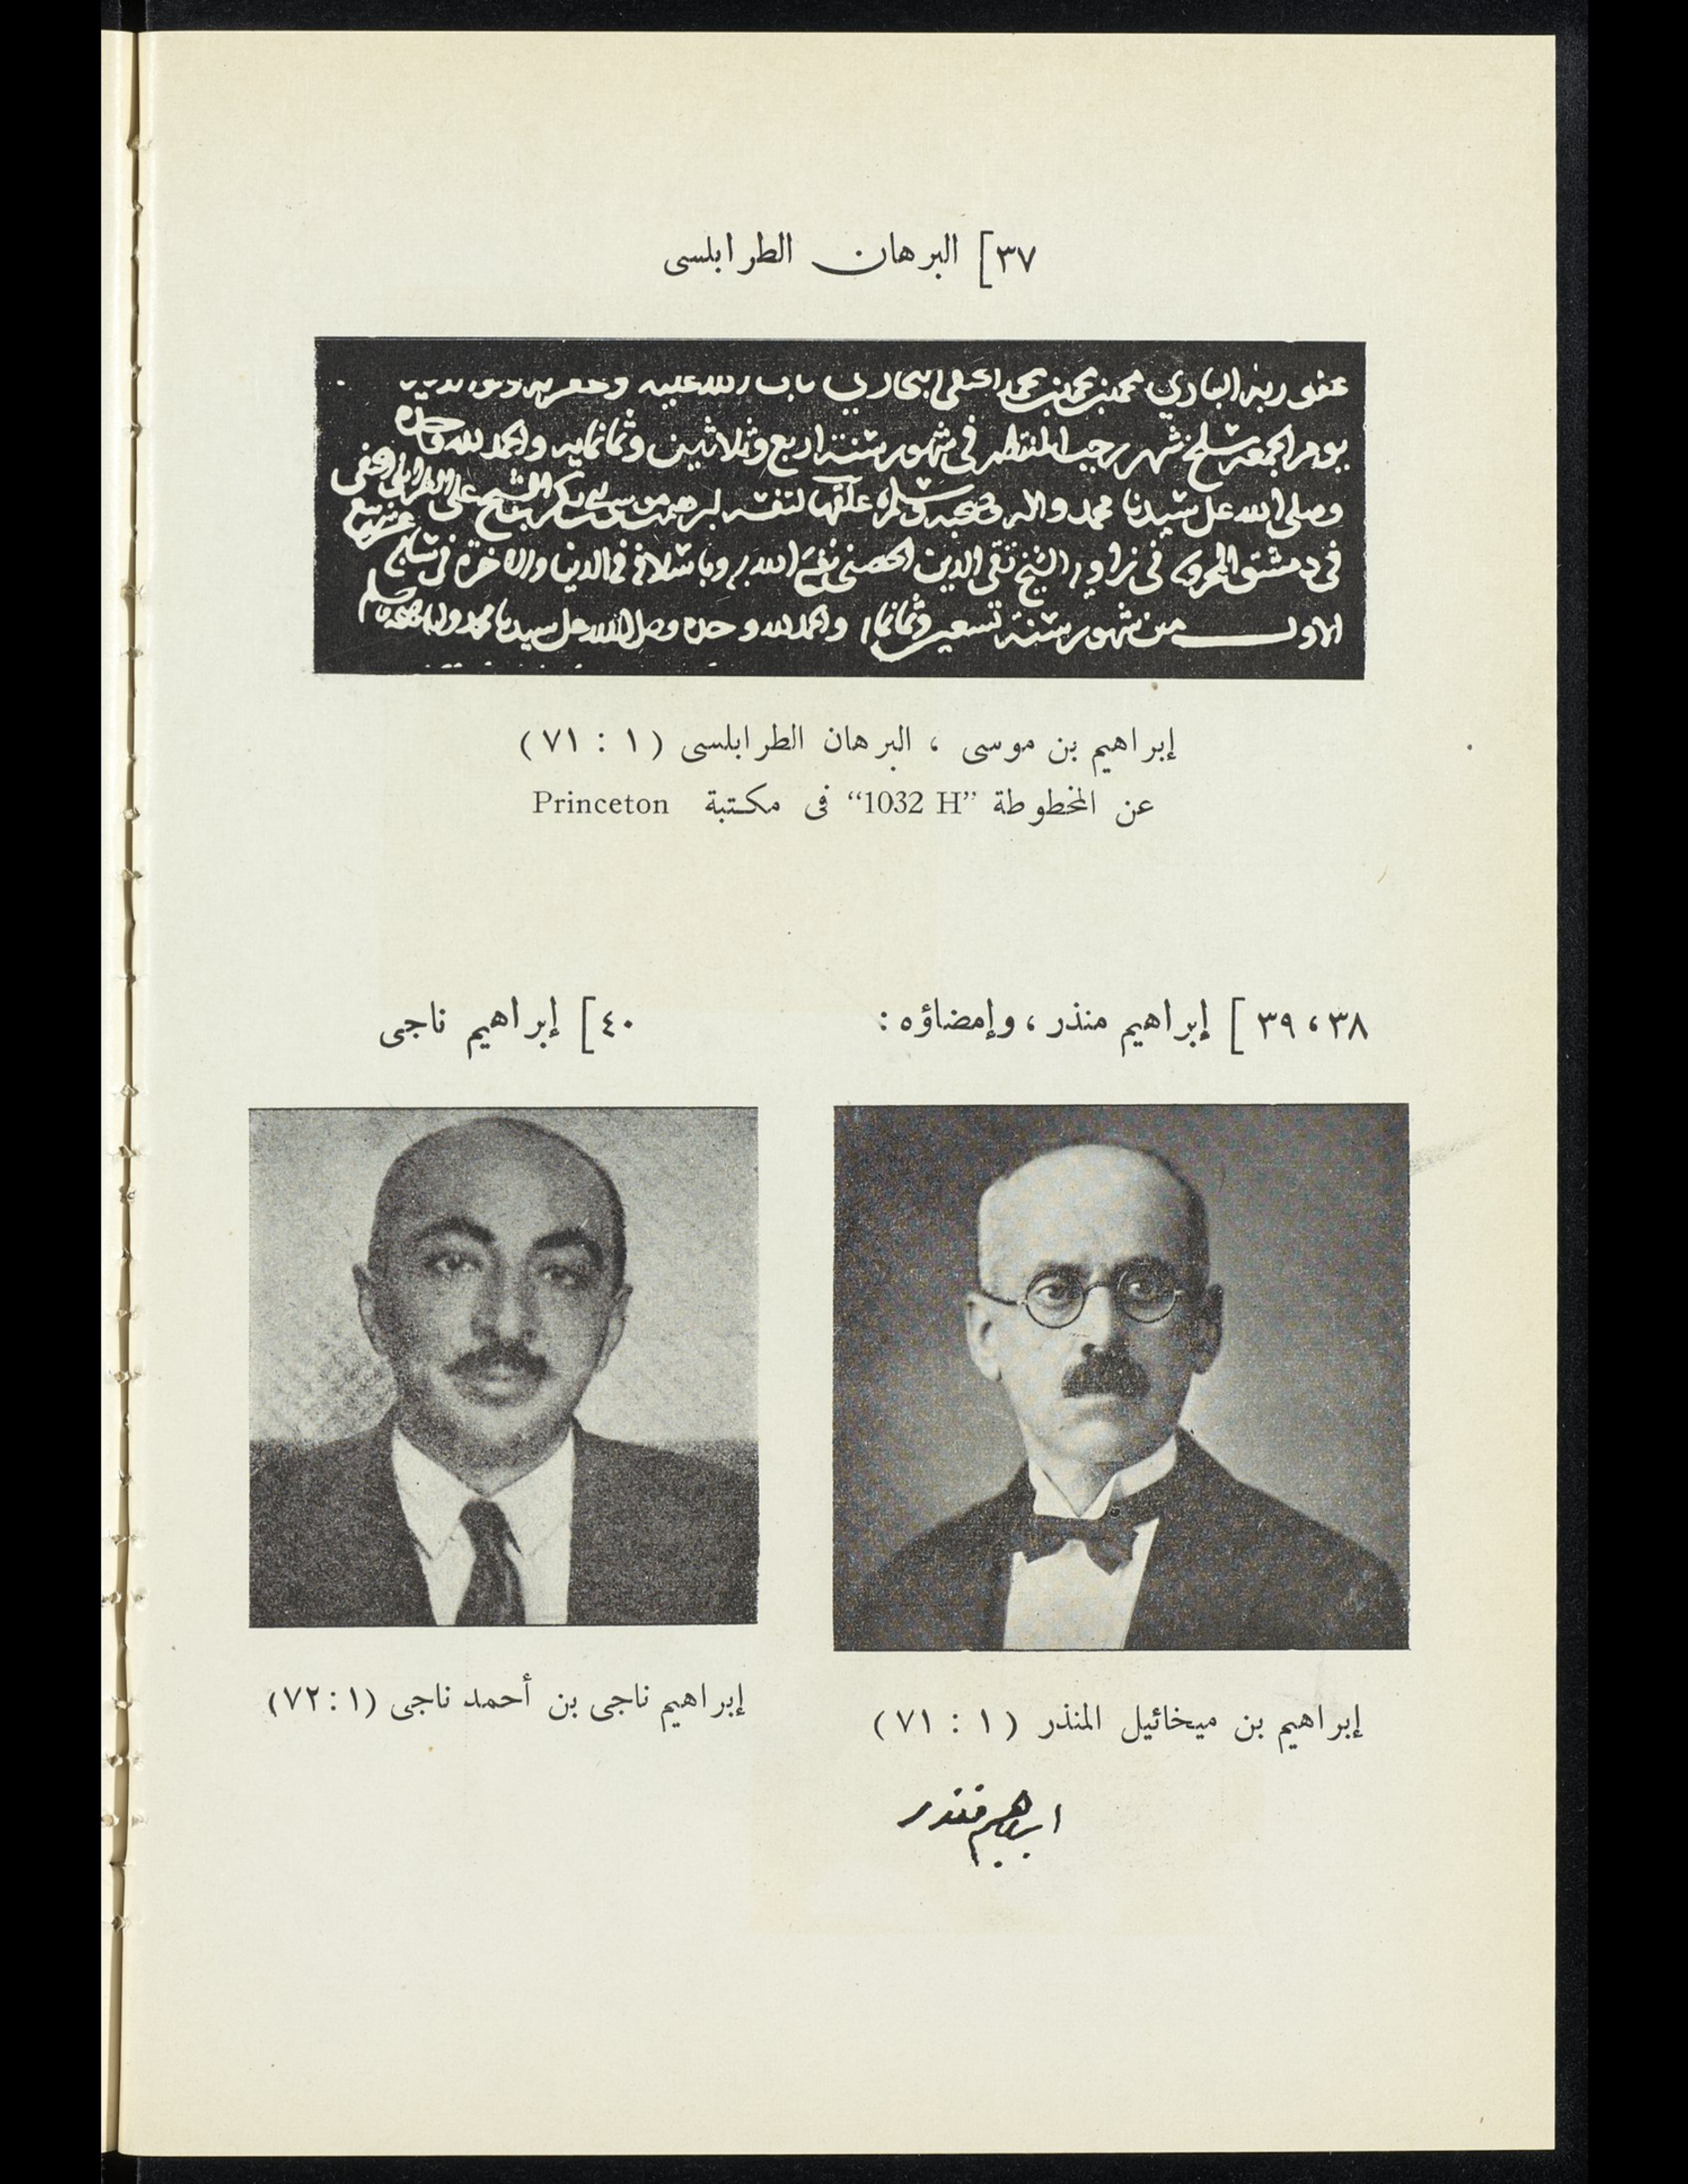 ٣٧] البرهان الطرابلسى
عفو ربه البارى محمد بن محمد بن محمد الحنفى البخارى تاب الله عليه
يوم الجمعة سلخ شهر رجب المنتظم فى شهور سنة اربع وثلاثين وثمانمايه والحمد لله وحده
وصلى الله على سيدنا محمد واله وصحبه وسلم علقها لنفسه ابرهيم بن موسى بن ابى بكر بن الشيخ على الطرابلسى الحنفى
فى دمشق المحروسه فى زاوية الشيخ تقى الدين الحصنى نفع الله به وباسلافه فى الدنيا والاخرة فى سابع عشر ربيع
الاول من شهور سنة تسعين وثمانمايه والحمد لله وحده وصلى الله على سيدنا محمد واله وصحبه وسلم
إبراهيم بن موسى ، البرهان الطرابلسى ( ١ : ٧١ )
عن المخطوطة “1032 H” فى مكتبة Princeton
٣٨ ، ٣٩ ] إبراهيم منذر ، وإمضاؤه :
٤٠] إبراهيم ناجى
إبراهيم بن ميخائيل المنذر ( ١ : ٧١ )
ابراهيم منذر
إبراهيم ناجى بن أحمد ناجى (١ : ٧٢)